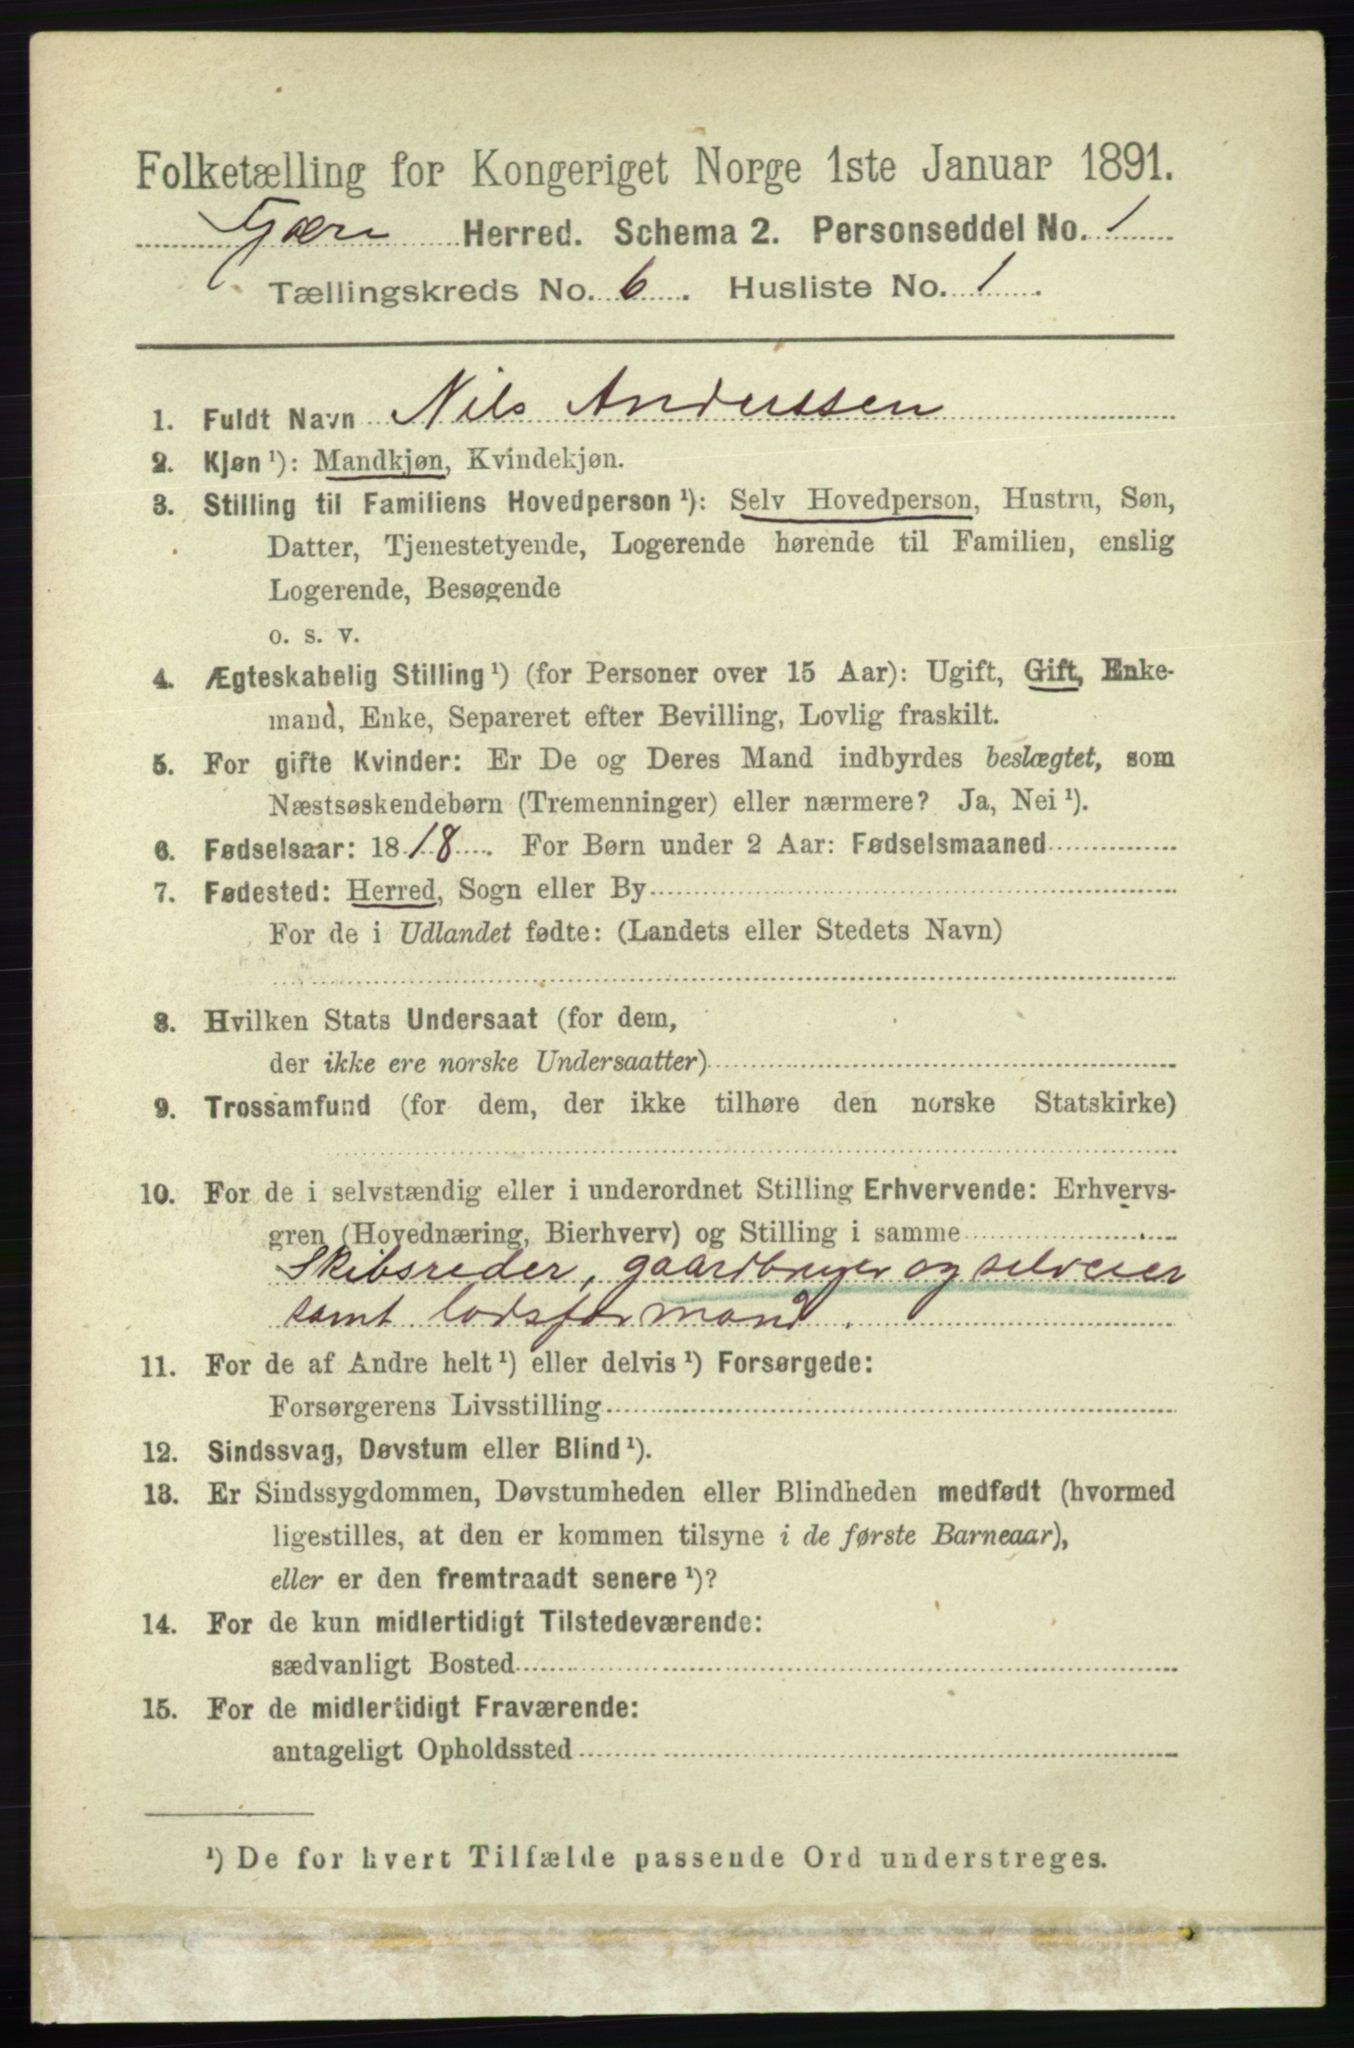 Folketælling for Kongeriget Norge 1ste Januar 1891.
Fjære Herred. Schema 2. Personseddel No. 1
Tællingskreds No. 6. Husliste No. 1.
1. Fuldt Navn Nils Anderssen
2. Kjøn ¹): Mandkjøn, Kvindekjøn.
3. Stilling til Familiens Hovedperson ¹): Selv Hovedperson, Hustru, Søn,
Datter, Tjenestetyende, Logerende hørende til Familien, enslig
Logerende, Besøgende
o. s. v.
4. Ægteskabelig Stilling ¹) (for Personer over 15 Aar): Ugift, Gift, Enke-
mand, Enke, Separeret efter Bevilling, Lovlig fraskilt.
5. For gifte Kvinder: Er De og Deres Mand indbyrdes beslægtet, som
Næstsøskendebørn (Tremenninger) eller nærmere? Ja, Nei ¹).
6. Fødselsaar: 1818. For Børn under 2 Aar: Fødselsmaaned
7. Fødested: Herred, Sogn eller By
For de i Udlandet fødte: (Landets eller Stedets Navn)
8. Hvilken Stats Undersaat (for dem,
der ikke ere norske Undersaatter)
9. Trossamfund (for dem, der ikke tilhøre den norske Statskirke)
10. For de i selvstændig eller i underordnet Stilling Erhvervende: Erhvervs-
gren (Hovednæring, Bierhverv) og Stilling i samme
Skibsreder, gaardbruger og selveier
samt lodsformand.
11. For de af Andre helt ¹) eller delvis ¹) Forsørgede:
Forsørgerens Livsstilling
12. Sindssvag, Døvstum eller Blind ¹).
13. Er Sindssygdommen, Døvstumheden eller Blindheden medfødt (hvormed
ligestilles, at den er kommen tilsyne i de første Barneaar),
eller er den fremtraadt senere ¹)?
14. For de kun midlertidigt Tilstedeværende:
sædvanligt Bosted
15. For de midlertidigt Fraværende:
antageligt Opholdssted
¹) De for hvert Tilfælde passende Ord understreges.